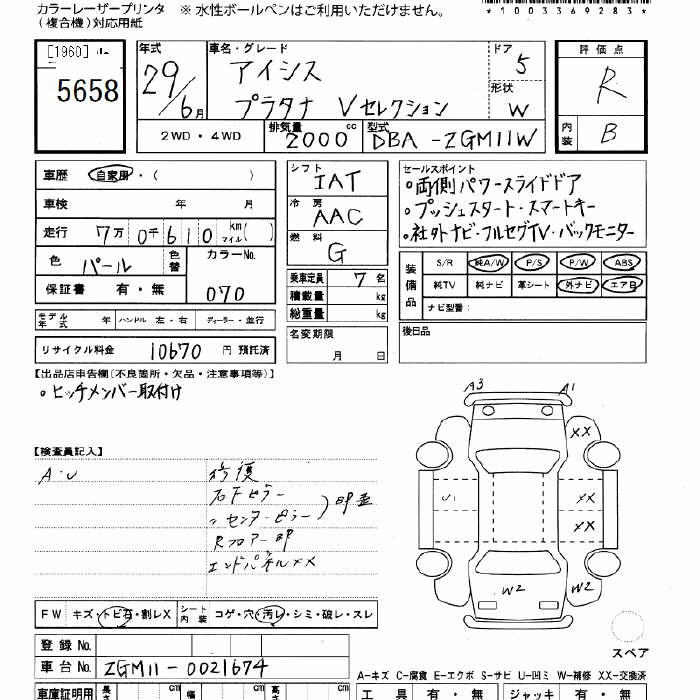 カラーレーザープリンタ ※ 水性ボールペンはご利用いただけません。
(複合機)対応用紙
*1003369283*
[1960]
5658
年式 29/6月
車名・グレード
アイシス
プラタナ Vセレクション
ドア 5
形状 W
2WD・4WD
排気量 2000 cc
型式 DBA-ZGM11W
評価点
R
内装 B
車歴 自家用・( )
車検 年 月
走行 7万 0千 6 1 0 km マイル( )
色 パール 色替 カラーNo.
保証書 有・無 070
シフト IAT
冷房 AAC
燃料 G
乗車定員 7 名
積載量 kg
総重量 kg
名変期限
月 日
セールスポイント
。両側パワースライドドア
。プッシュスタート・スマートキー
。社外ナビ・フルセグTV・バックモニター
装備品 S/R 純A/W P/S P/W ABS
純TV 純ナビ 革シート 外ナビ エアB
ナビ型番:
後日品
モデル年式 年 ハンドル 左・右 ディーラー・並行
リサイクル料金 10670 円 預託済
【出品店申告欄(不良箇所・欠品・注意事項等)】
。ヒッチメンバー取付け
【検査員記入】
A・U
修復
右Fピラー
〃センターピラー
印歪
Rフロアー印
エンドパネルXX
A3
A1
XX
U1
XX
XX
W2
W2
スペア
FW キズ・トビ石・割レX シート内装 コゲ・穴・汚レ・シミ・破レ・スレ
登録 No.
車台 No. ZGM11-0021674
A-キズ C-腐食 E-エクボ S-サビ U-凹ミ W-補修 XX-交換済
車庫証明用 長さ cm 幅 cm 高さ cm
工具 有・無 ジャッキ 有・無